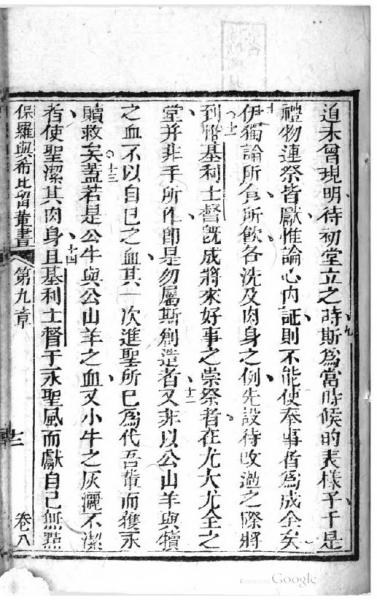 道未曾現明待初堂立之時斯為當時候的表樣予于是
禮物連祭皆獻惟論心內証則不能使奉事者為成全矣
伊獨論所食所飲各洗及肉身之例先設待改過之際將
到㬌基利士督旣成將來好事之崇祭者在尤大尤全之
堂并非手所作卽是勿屬斯創造者又非以公山羊與犢
之血不以自己之血其一次進聖所已為代吾輩而獲永
贖救矣蓋若是公牛與公山羊之血又小牛之灰灑不潔
者使聖潔其肉身且基利士督于永聖風而獻自己無點
保羅與希比留輩書
第九章
三
卷八
Google